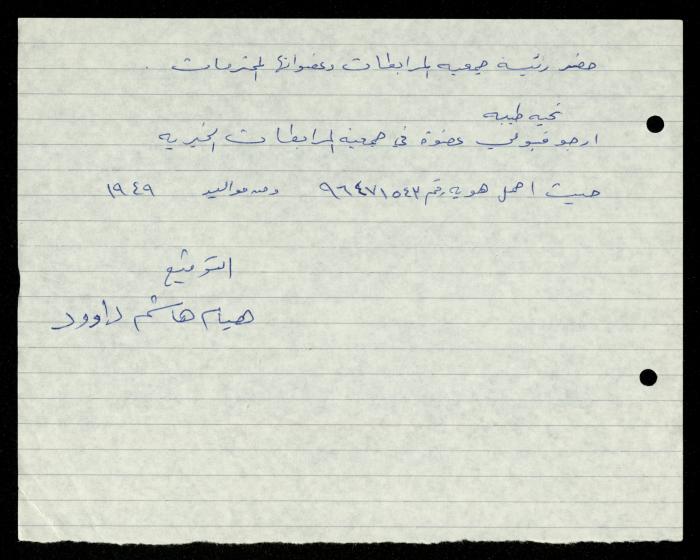 حضر رئيسة جمعيه المرابطات وعضواتها المحترمات .
تحيه طيبه
ارجو قبولي عضوة في جمعية المرابطات الخيريه
حيث احمل هويه رقم ٩٦٤٧١٥٤٣ ومن مواليد ١٩٤٩
التوقيع
هيام هاشم داوود